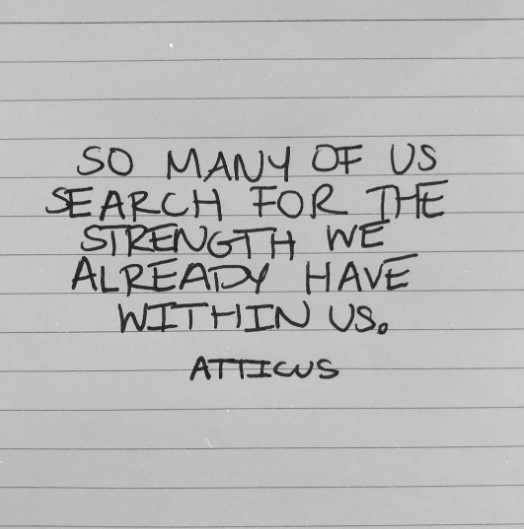 SO MANY OF US
SEARCH FOR THE
STRENGTH WE
ALREADY HAVE
WITHIN US.
ATTICUS